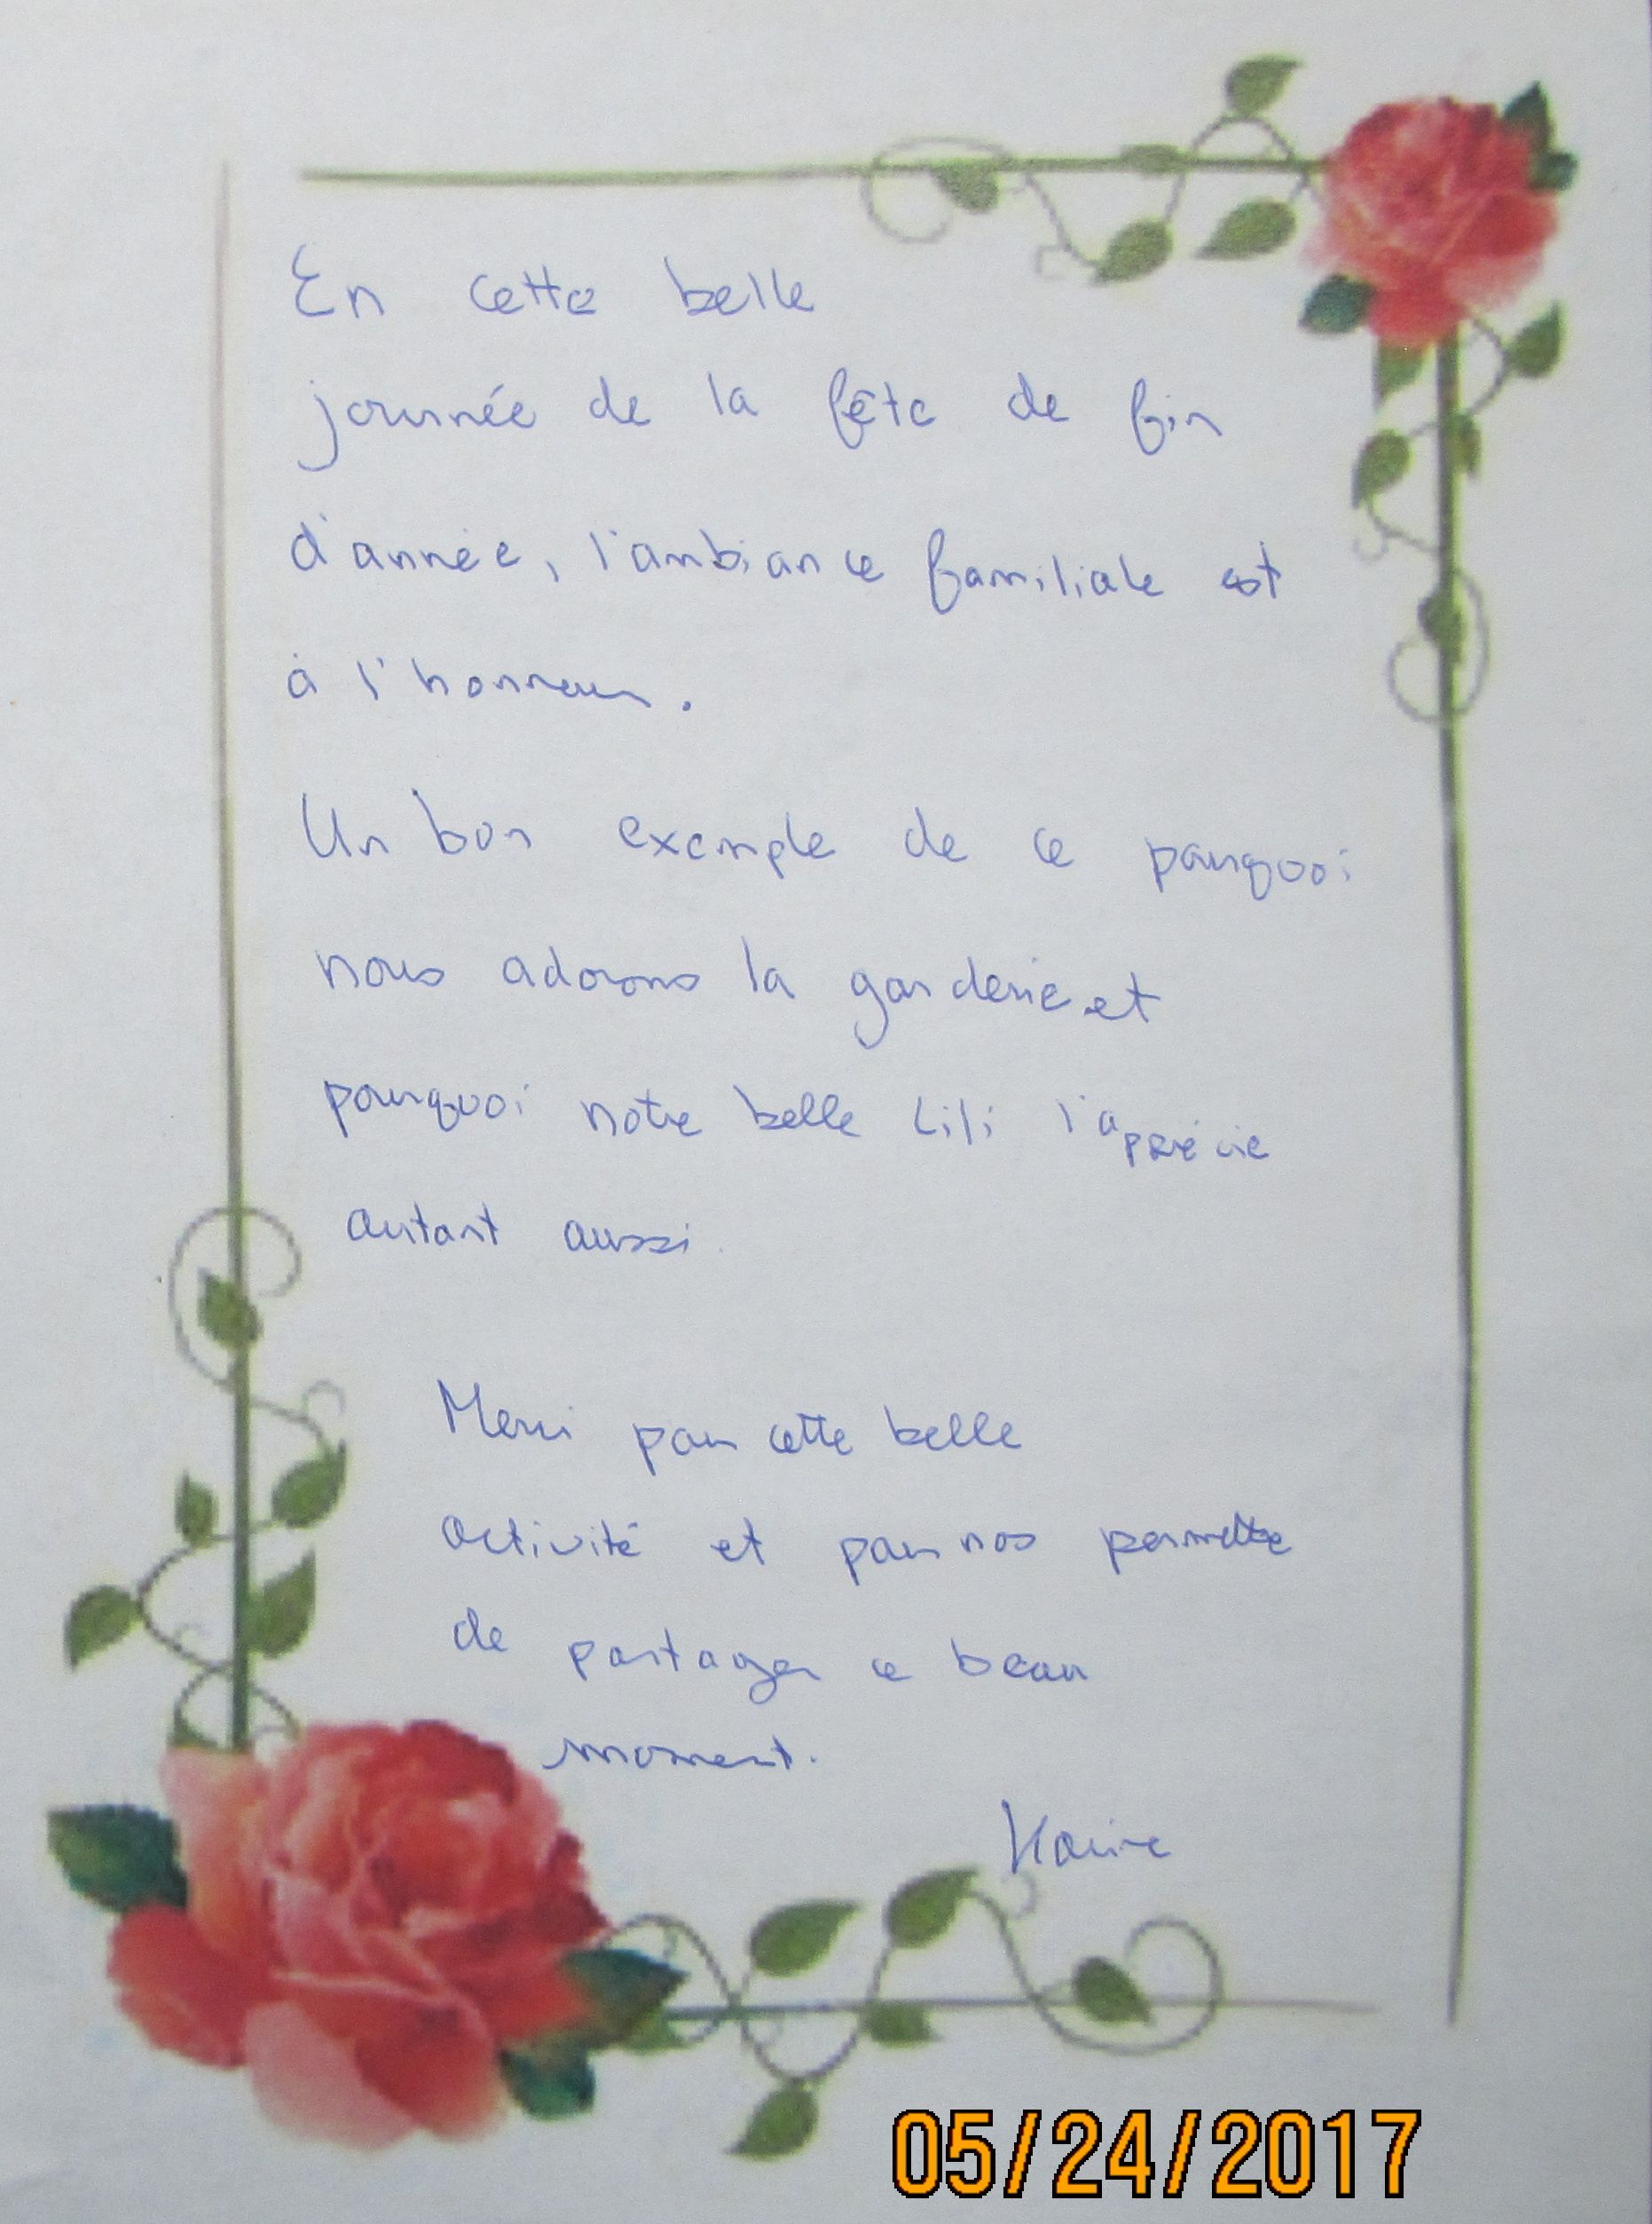 En cette belle
journée de la fête de fin
d'année, l'ambiance familiale est
à l'honneur.
Un bon exemple de ce pourquoi
nous adorons la garderie et
pourquoi notre belle Lili l'apprécie
autant aussi.
Merci pour cette belle
activité et pour nos permettre
de partager ce beau
moment.
Karine
05/24/2017